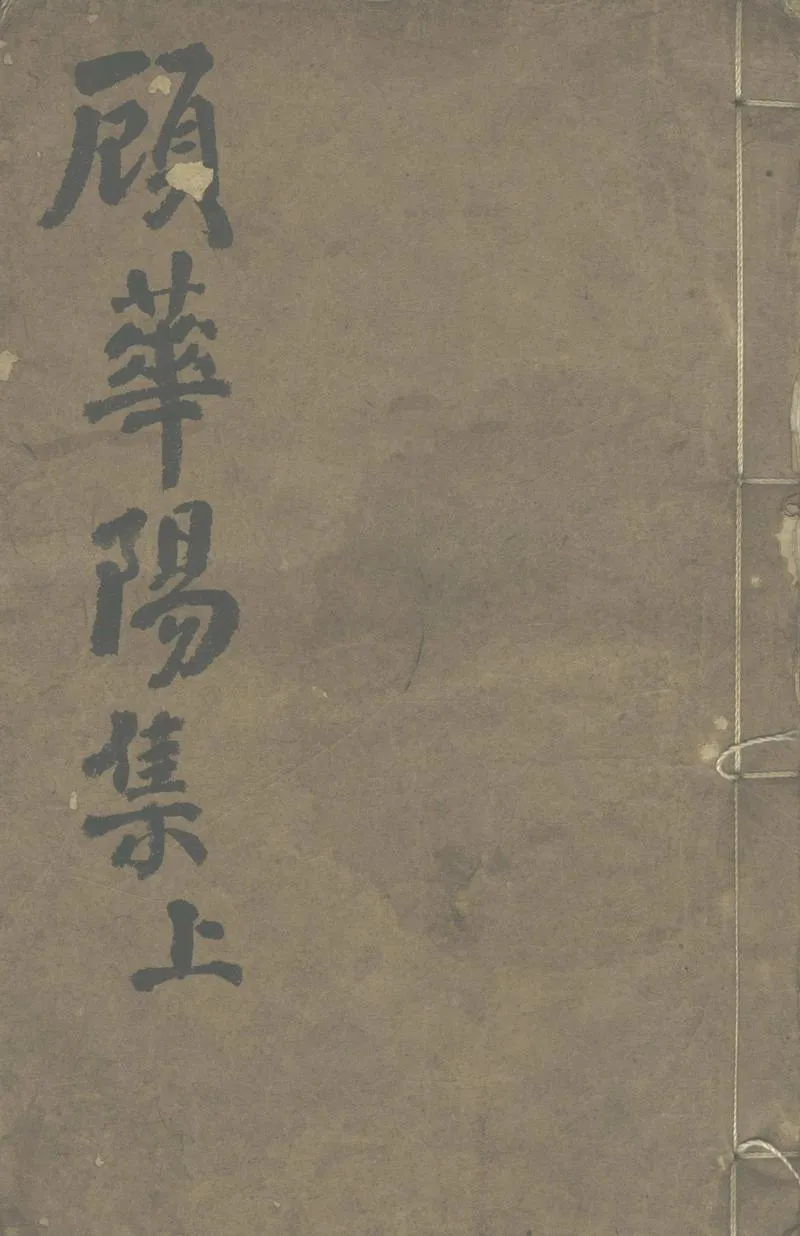 顾華陽集上